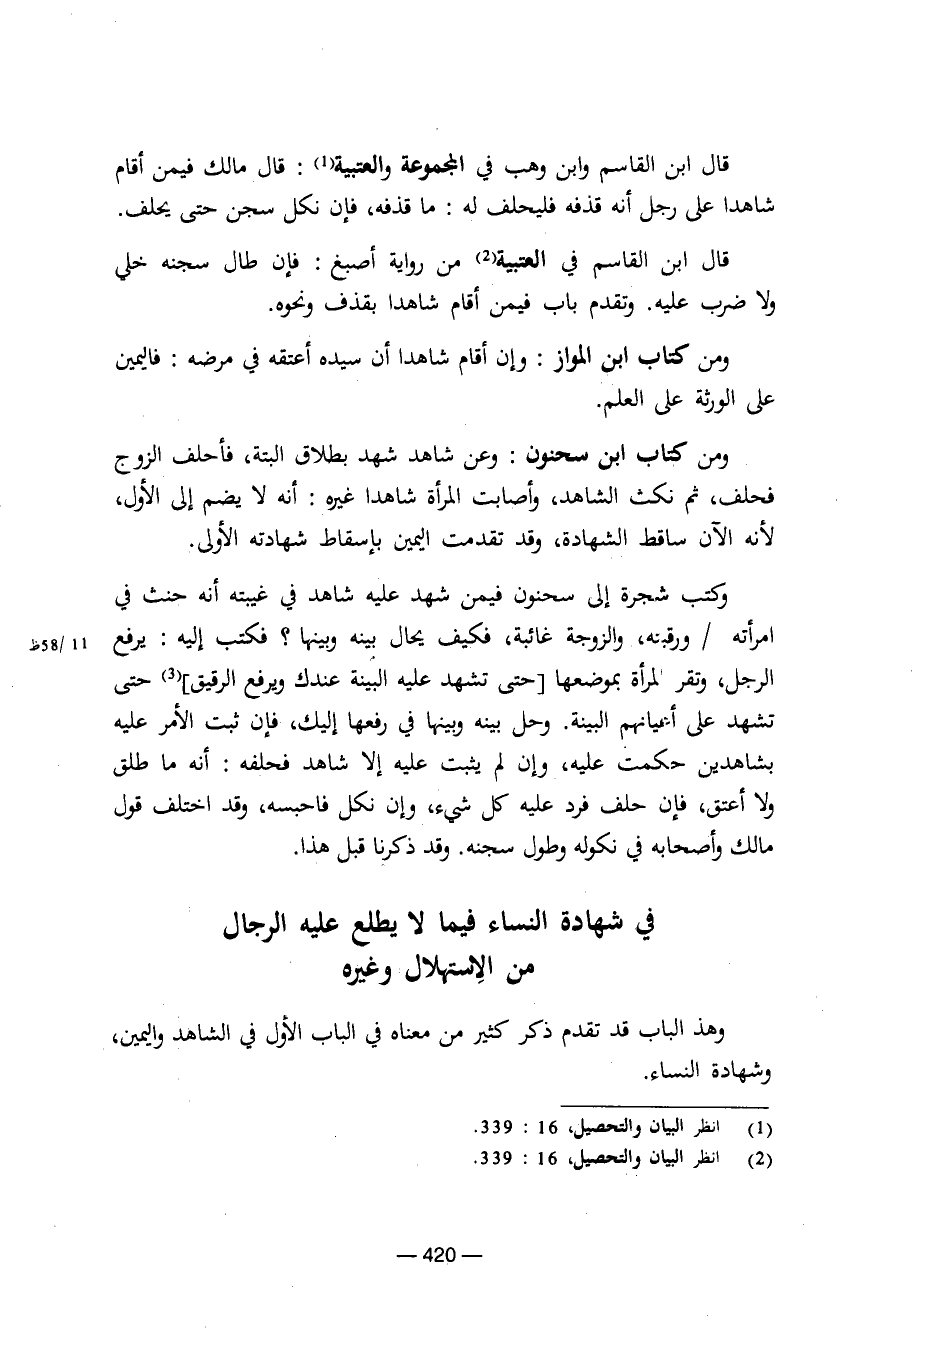 قال ابن القاسم وابن وهب في المجموعة والعتبية(1) : قال مالك فيمن أقام
شاهدا على رجل أنه قذفه فليحلف له : ما قذفه، فإن نكل سجن حتى يحلف.
قال ابن القاسم في العتبية(2) من رواية أصبغ : فإن طال سجنه خلي
ولا ضرب عليه. وتقدم باب فيمن أقام شاهدا بقذف ونحوه.
ومن كتاب ابن المواز : وإن أقام شاهدا أن سيده أعتقه في مرضه : فاليمين
على الورثة على العلم.
ومن كتاب ابن سحنون : وعن شاهد شهد بطلاق البتة، فأحلف الزوج
فحلف، ثم نكث الشاهد، وأصابت المرأة شاهدا غيره : أنه لا يضم إلى الأول،
لأنه الآن ساقط الشهادة، وقد تقدمت اليمين بإسقاط شهادته الأولى.
وكتب شجرة إلى سحنون فيمن شهد عليه شاهد في غيبته أنه حنث في
امرأته / ورقيقه، والزوجة غائبة، فكيف يحال بينه وبينها ؟ فكتب إليه : يرفع
11 /58ظ
الرجل، وتقر المرأة بموضعها [حتى تشهد عليه البينة عندك ويرفع الرقيق](3) حتى
تشهد على أعيانهم البينة. وحل بينه وبينها في رفعها إليك، فإن ثبت الأمر عليه
بشاهدين حكمت عليه، وإن لم يثبت عليه إلا شاهد فحلفه : أنه ما طلق
ولا أعتق، فإن حلف فرد عليه كل شيء، وإن نكل فاحبسه، وقد اختلف قول
مالك وأصحابه في نكوله وطول سجنه. وقد ذكرنا قبل هذا.
في شهادة النساء فيما لا يطلع عليه الرجال
من الإستهلال وغيره
وهذ الباب قد تقدم ذكر كثير من معناه في الباب الأول في الشاهد واليمين،
وشهادة النساء.
(1) انظر البيان والتحصيل، 16 : 339.
(2) انظر البيان والتحصيل، 16 : 339.
— 420 —